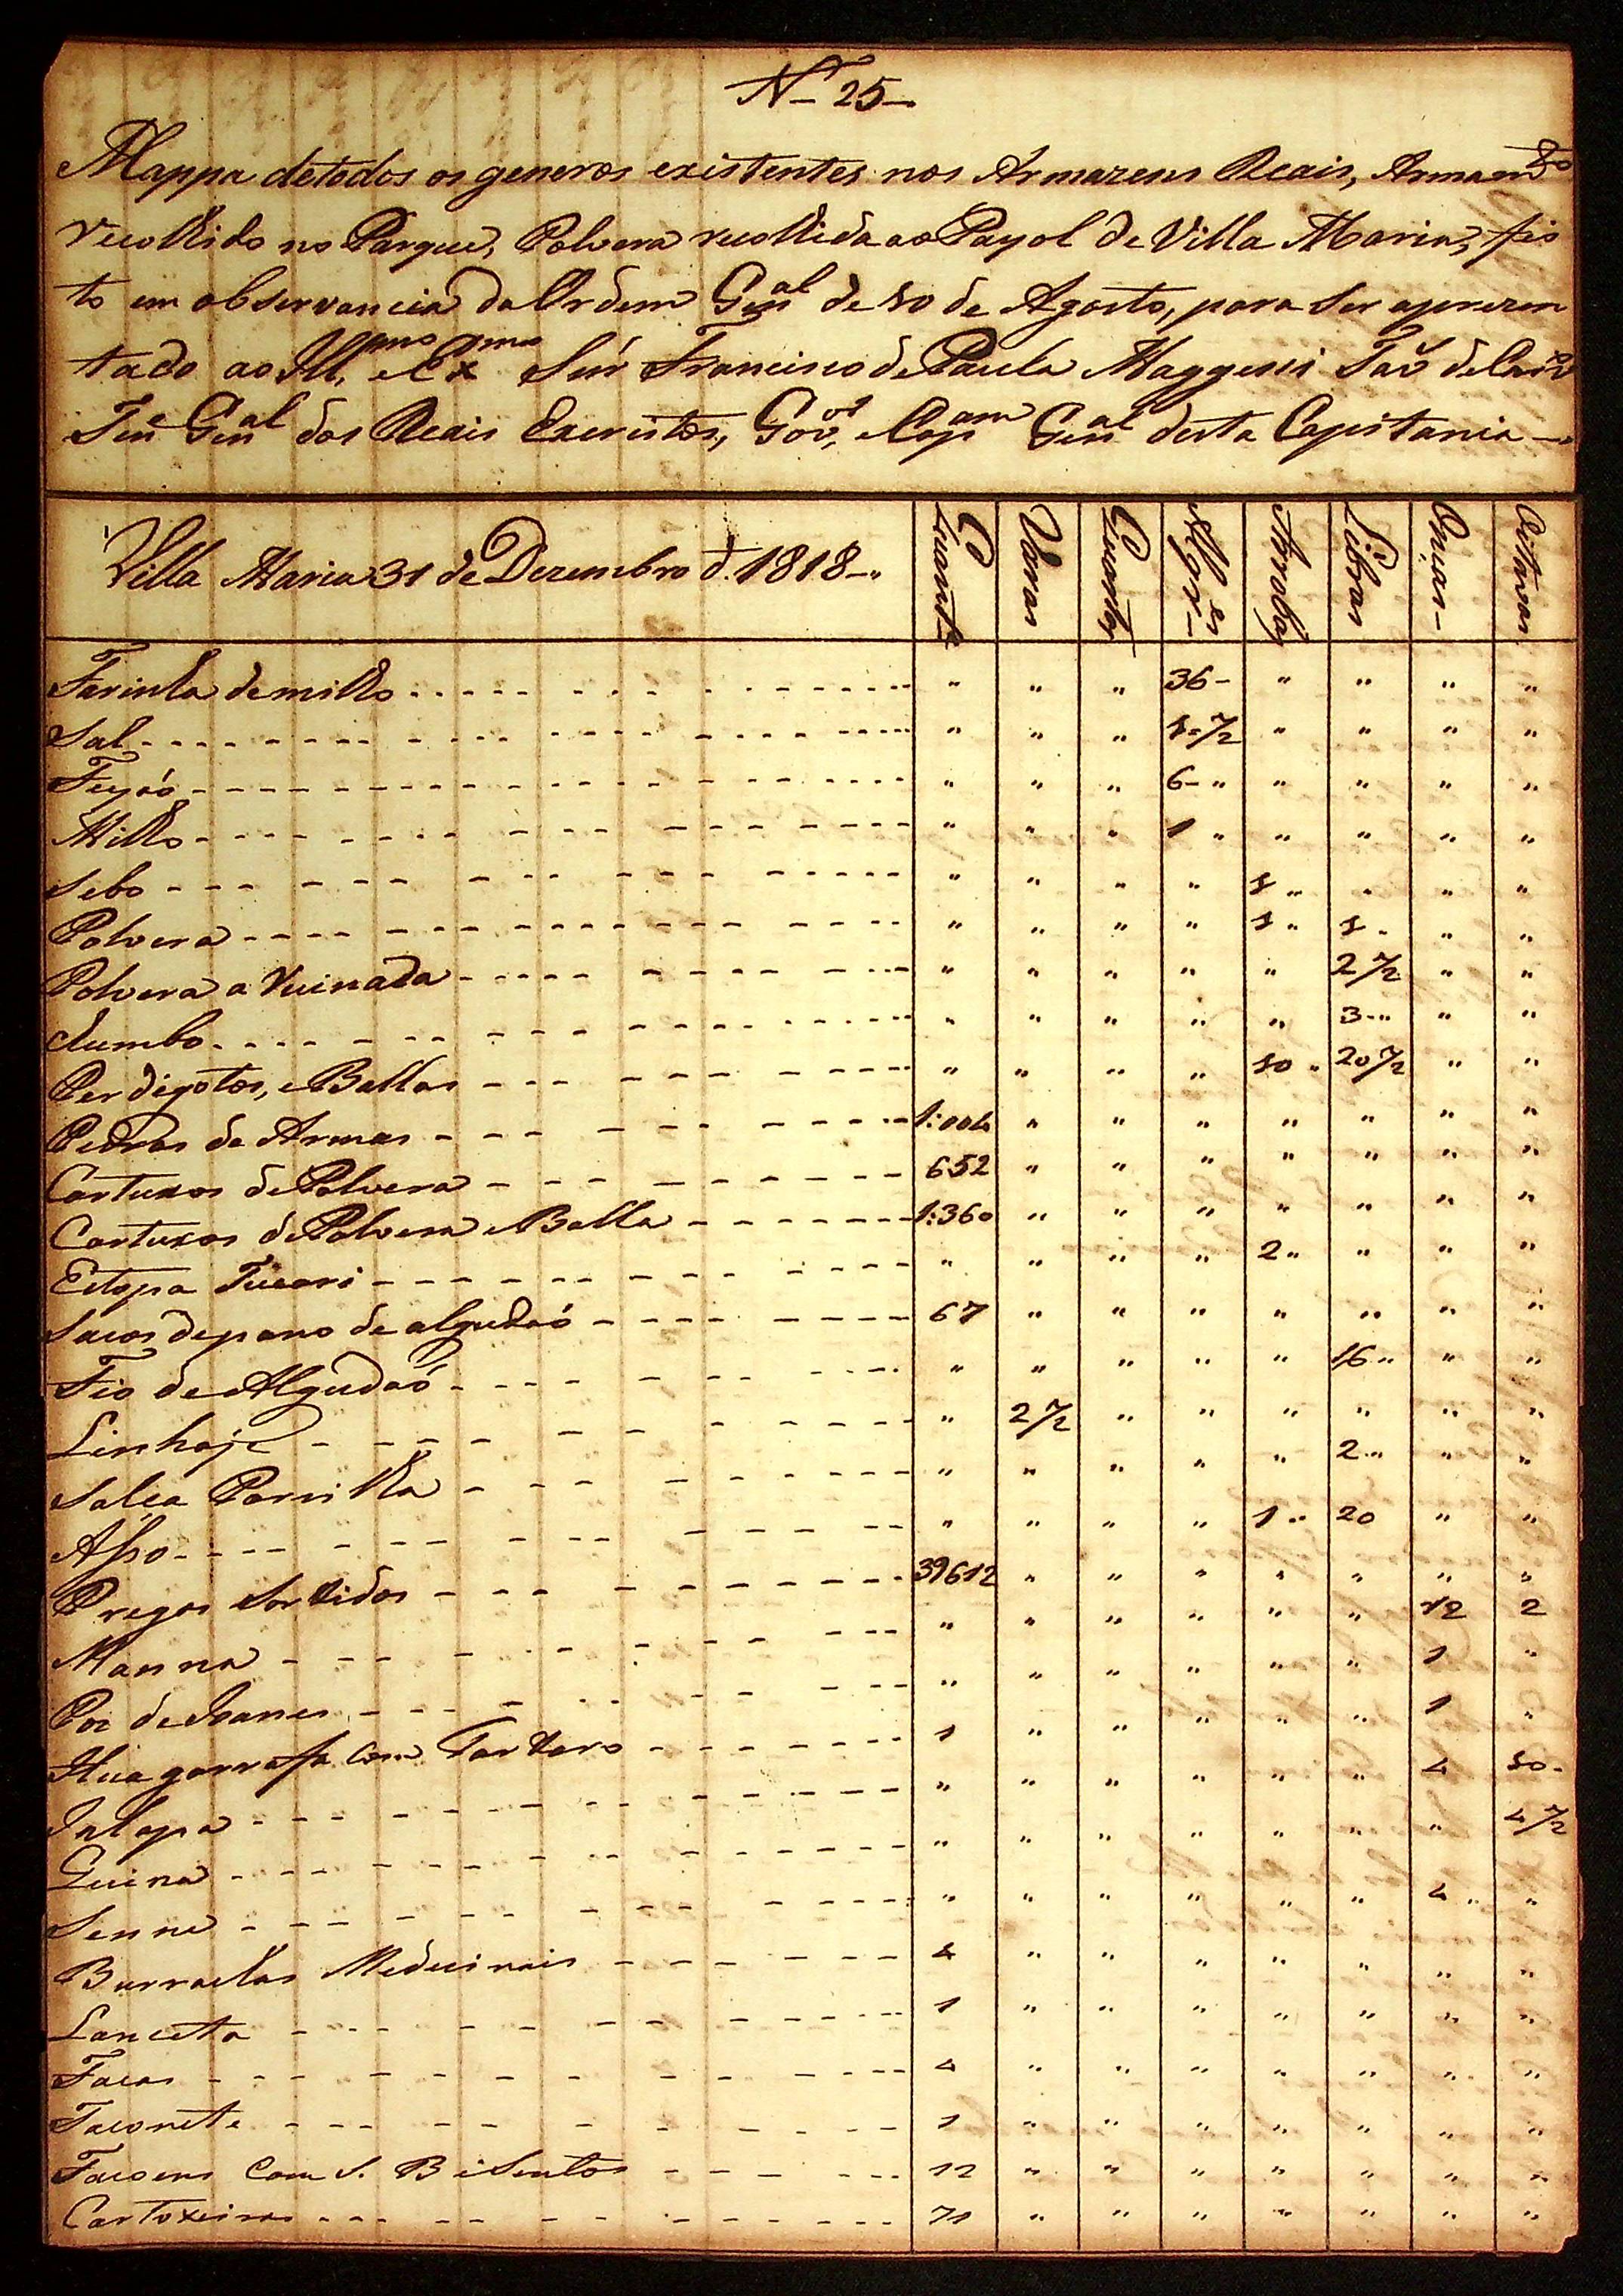 N– 25–
Mappa detodos os generos existentes nos Armazens Reais, Armamto
recolhido no Parque, Polvera recolhida ao Payol de Villa Maria, fei
to em observancia da Ordem Genal de 10 de Agosto, para ser aprezen
tado ao Illmo, e Exmo Snr̃ Francisco de Paula Maggessi Tav̆ de Carv̆
Ten̄e Genal dos Reais Exercitos, Govor, e Capam Genal desta Capitania –
Villa Maria 31 de Dezembro d. 1818–
Quante Varas Quartas Alqres– Arrobas Libras Onças– Oitavas
Farinha de milho " " " 36– " " " "
Sal " " " 1–1/2 " " " "
Feyjaó " " " 6– " " " " "
Milho " " " 1 " " " " "
Sebo " " " " 1 " " " "
Polvera " " " " 1 " 1 – " "
Polvera a Ruinada " " " " " 2 1/2 " "
Chumbo " " " " " 3–" " "
Perdigotos, e Ballas " " " " 10 " 20 1/2 " "
Pedras de Armas 1:004 " " " " " " "
Cartuxos de Polvera 652 " " " " " " "
Cartuxos de Polvera e Balla 1:360 " " " " " " "
Estopa Tucari " " " " 2 " " " "
Sacos de pano de algudaó 67 " " " " " " "
Fio de Algudaó " " " " " 16 " " "
Linhaje " 2 1/2 " " " " " "
Salca Parrilha " " " " " 2 " " "
Asso " " " " 1 " 20 " "
Pregos Sortidos 39612 " " " " " " "
Manna " " " " " " 12 2
Pos de Joannes " " " " " " 1 "
Hua garrafa com Tartaro 1 " " " " " 1 "
Jalapa " " " " " " 4 10–
Quina " " " " " " " 4 1/2
Senne " " " " " " 4 " "
Burrachas Medicinais 4 " " " " " " "
Lanceta 1 " " " " " " "
Facas 4 " " " " " " "
Faconete 1 " " " " " " "
Facoens com S. Bisentos 12 " " " " " " "
Cartoxeiras 71 " " " " " " "